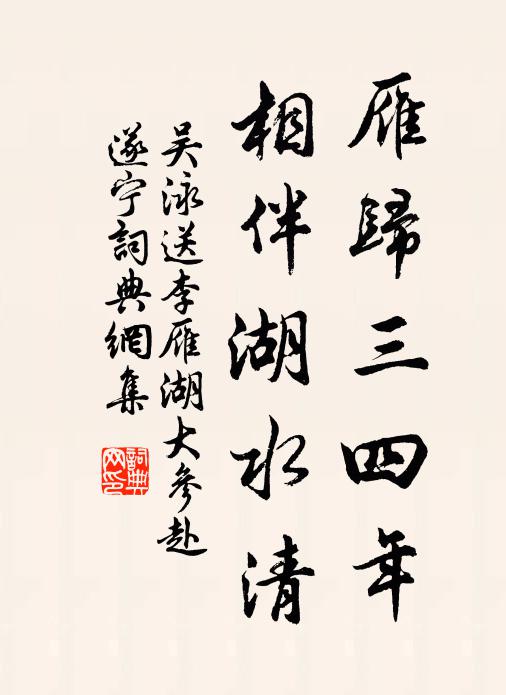 雁歸三四年
相伴湖水清
吴泳送李雁湖大參赴
遂宁詞典網集
詞典
网印